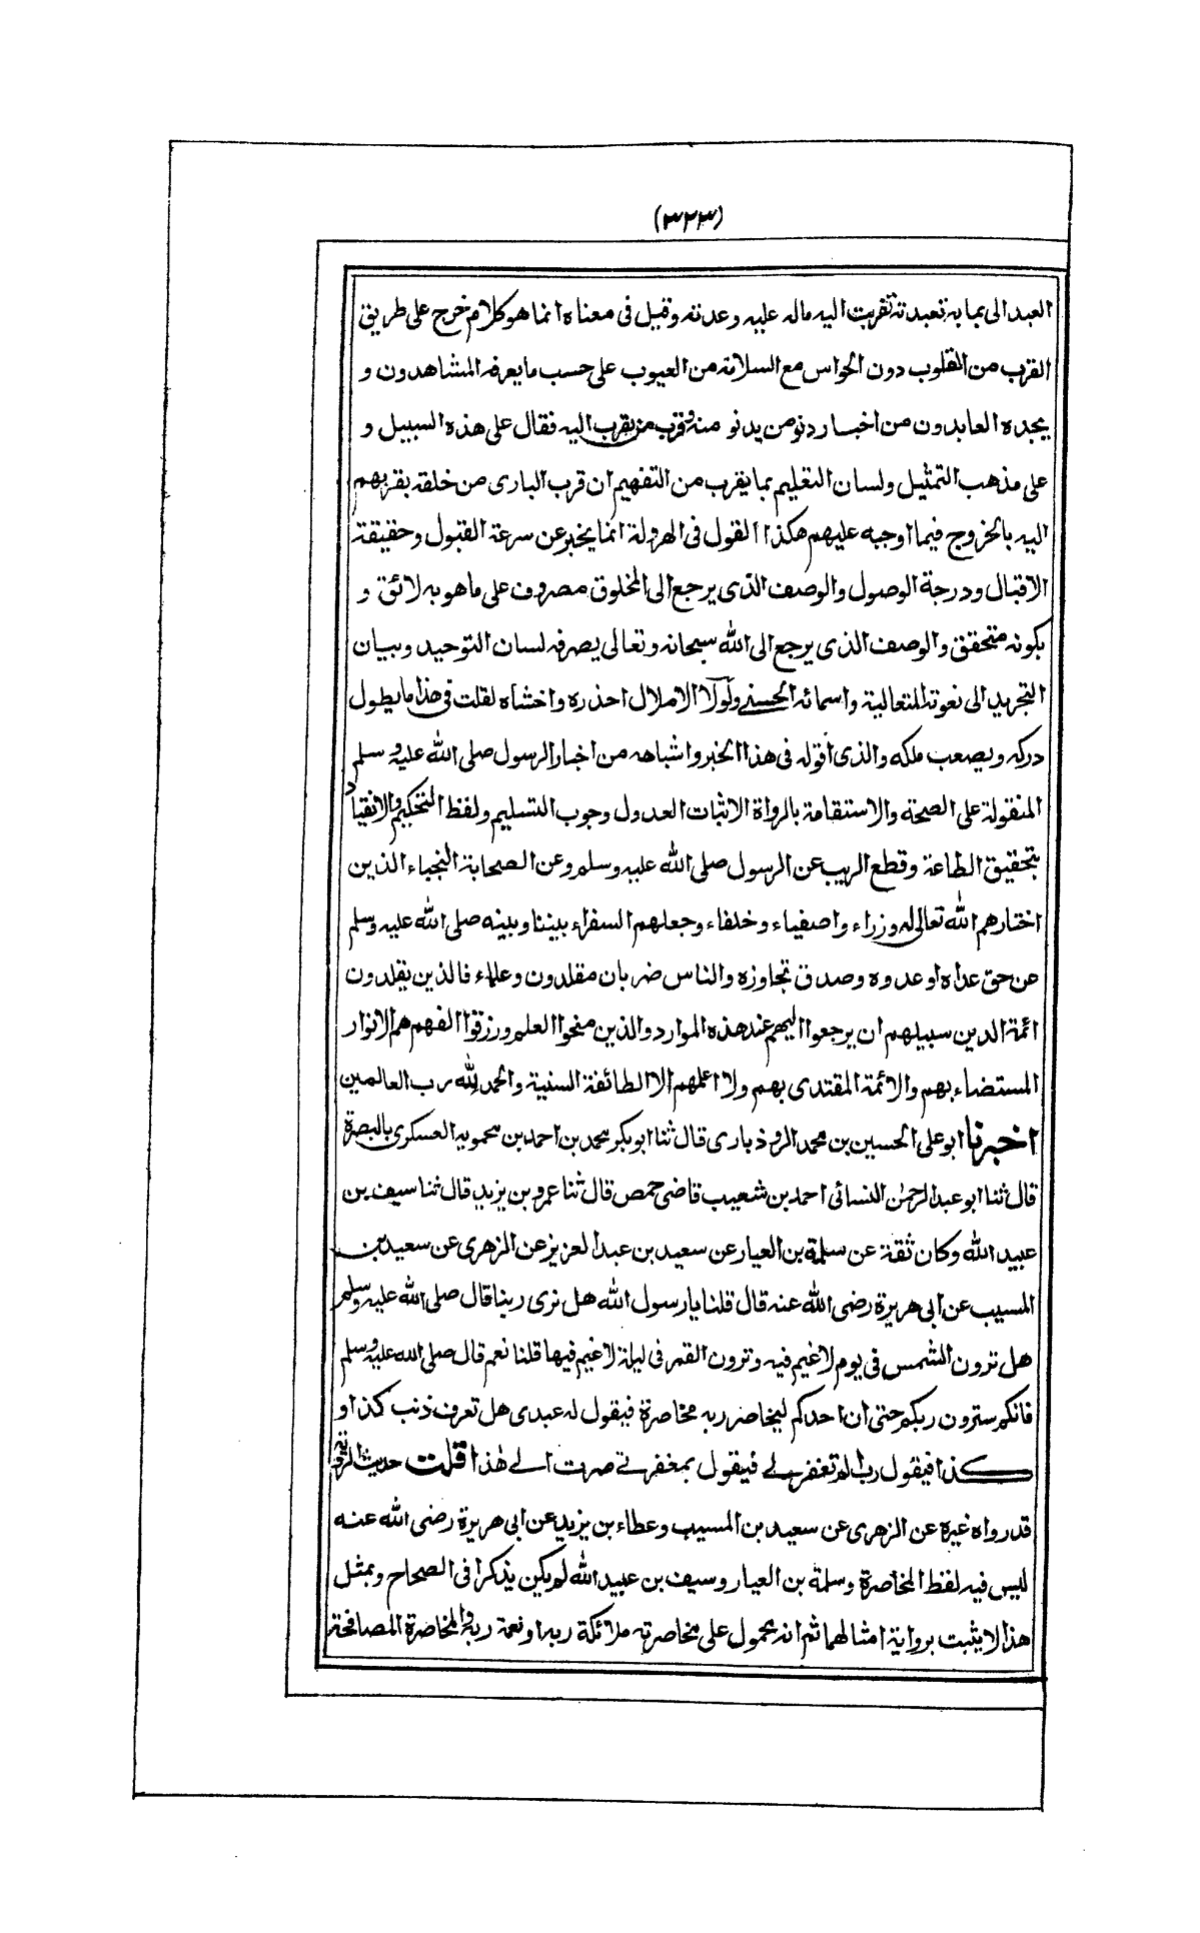 (٣٢٣)
العبد الى بما به تعبدته تقربت اليه ماله عليه وعدته وقيل فى معناه انما هو كلام خرج على طريق
القرب من القلوب دون الحواس مع السلامة من العيوب على حسب ما يعرفه المشاهدون و
يجده العابدون من اخبار دنو من يدنو منه وقرب من يقرب اليه فقال على هذه السبيل و
على مذهب التمثيل ولسان التعليم بما يقرب من التفهيم ان قرب البارى من خلقه بقربهم
اليه بالخروج فيما اوجبه عليهم هكذا القول فى الهرولة انما يخبر عن سرعة القبول وحقيقة
الاقبال ودرجة الوصول والوصف الذى يرجع الى المخلوق مصروف على ما هو به لائق و
بكونه متحقق والوصف الذى يرجع الى الله سبحانه وتعالى يصرفه لسان التوحيد وبيان
التجريد الى نعوته المتعالية واسمائه الحسنى ولولا الاملال احذره واخشاه لقلت فى هذا ما يطول
دركه ويصعب ملكه والذى اقوله فى هذا الخبر واشباهه من اخبار الرسول صلى الله عليه وسلم
المنقولة على الصحة والاستقامة بالرواة الاثبات العدول وجوب التسليم ولفظ التحكيم والانقياد
بتحقيق الطاعة وقطع الريب عن الرسول صلى الله عليه وسلم وعن الصحابة النجباء الذين
اختارهم الله تعالى له وزراء واصفياء وخلفاء وجعلهم السفراء بيننا وبينه صلى الله عليه وسلم
عن حق عداه او عدوه وصدق تجاوزه والناس ضربان مقلدون وعلماء فالذين يقلدون
ائمة الدين سبيلهم ان يرجعوا اليهم عند هذه الموارد والذين منحوا العلم ورزقوا الفهم هم الانوار
المستضاء بهم والائمة المقتدى بهم ولا اعلمهم الا الطائفة السنية والحمد لله رب العالمين
اخبرنا ابو على الحسين بن محمد الروذبارى قال ثنا ابو بكر محمد بن احمد بن محمويه العسكرى بالبصرة
قال ثنا ابو عبد الرحمٰن النسائى احمد بن شعيب قاضى حمص قال ثنا عمرو بن يزيد قال ثنا سيف بن
عبيد الله وكان ثقة عن سلمة بن العيار عن سعيد بن عبد العزيز عن الزهرى عن سعيد بن
المسيب عن ابى هريرة رضى الله عنه قال قلنا يا رسول الله هل نرى ربنا قال صلى الله عليه وسلم
هل ترون الشمس فى يوم لا غيم فيه وترون القمر فى ليلة لا غيم فيها قلنا نعم قال صلى الله عليه وسلم
فانكم سترون ربكم حتى ان احدكم ليخاصر ربه مخاصرة فيقول له عبدى هل تعرف ذنب كذا و
كذا فيقول رب الم تغفر لى فيقول بمغفرتى صرت الى هٰذا قلت حديث الرؤية
قد رواه غيره عن الزهرى عن سعيد بن المسيب وعطاء بن يزيد عن ابى هريرة رضى الله عنه
ليس فيه لفظ المخاصرة وسلمة بن العيار وسيف بن عبيد الله لم يكن يذكرا فى الصحاح وبمثل
هذا لا يثبت برواية امثالهما ثم انه محمول على مخاصرته ملائكة ربه او نعمة ربه والمخاصرة المصافحة